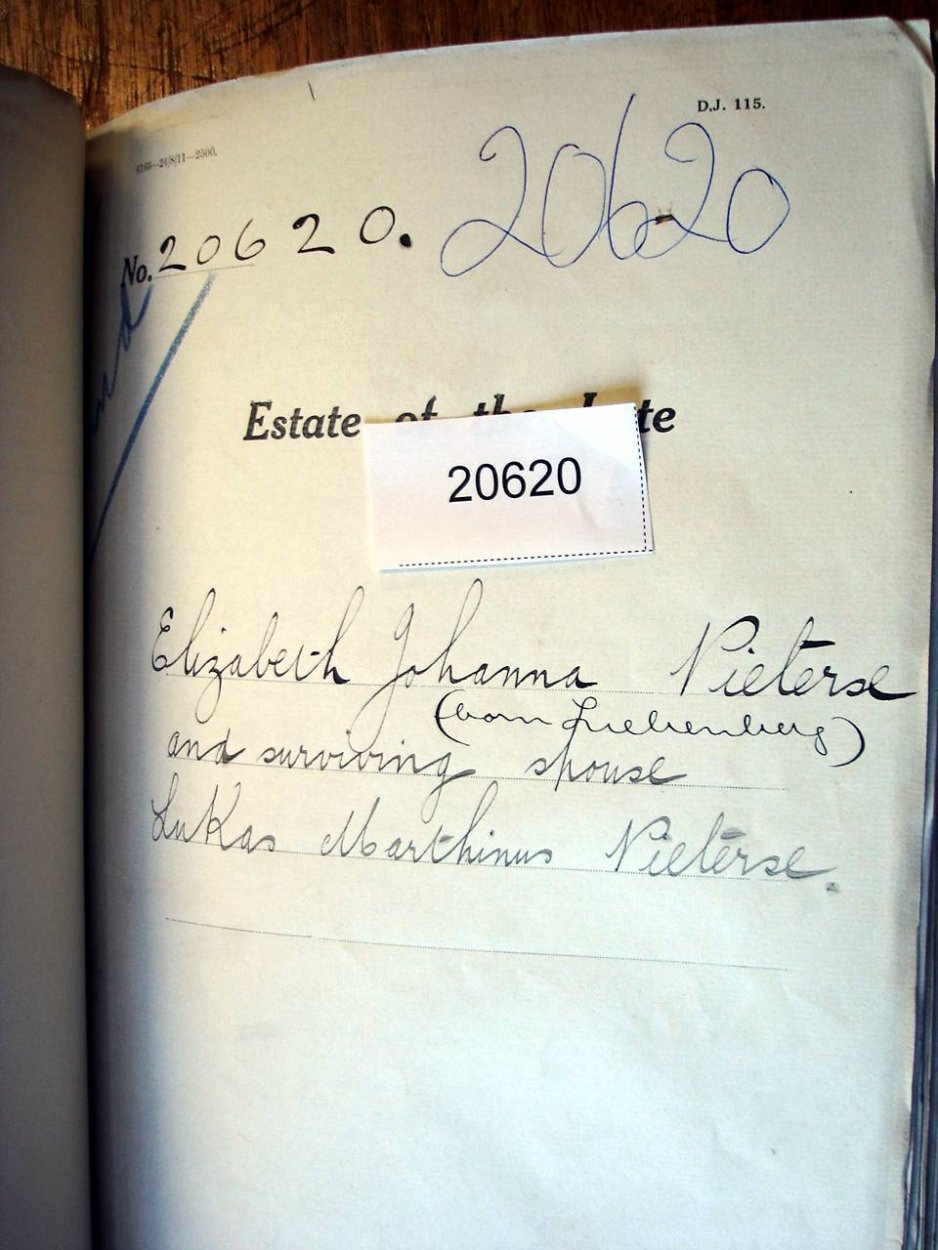 D.J. 115.
4263—24/8/11—2500.
No. 20620. 20620
Estate of the Late
20620
Elizabeth Johanna Pieterse
(born Liebenberg)
and surviving spouse
Lukas Marthinus Pieterse.